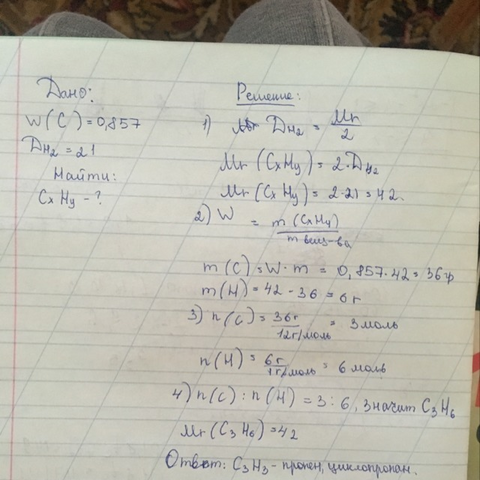 Дано:
W(C)=0,857
DH2=21
Найти:
CxHy-?
Решение:
1) DH2 = Mr/2
Mr(CxHy)=2·DH2
Mr(CxHy)=2·21=42.
2) W = m(CxHy)/m вещ-ва
m(C)=W·m=0,857·42=36г
m(H)=42-36=6г
3) n(C)=36г/12г/моль=3моль
n(H)=6г/1г/моль=6моль
4) n(C):n(H)=3:6, значит C3H6
Mr(C3H6)=42
Ответ: C3H3-пропен, циклопропан.